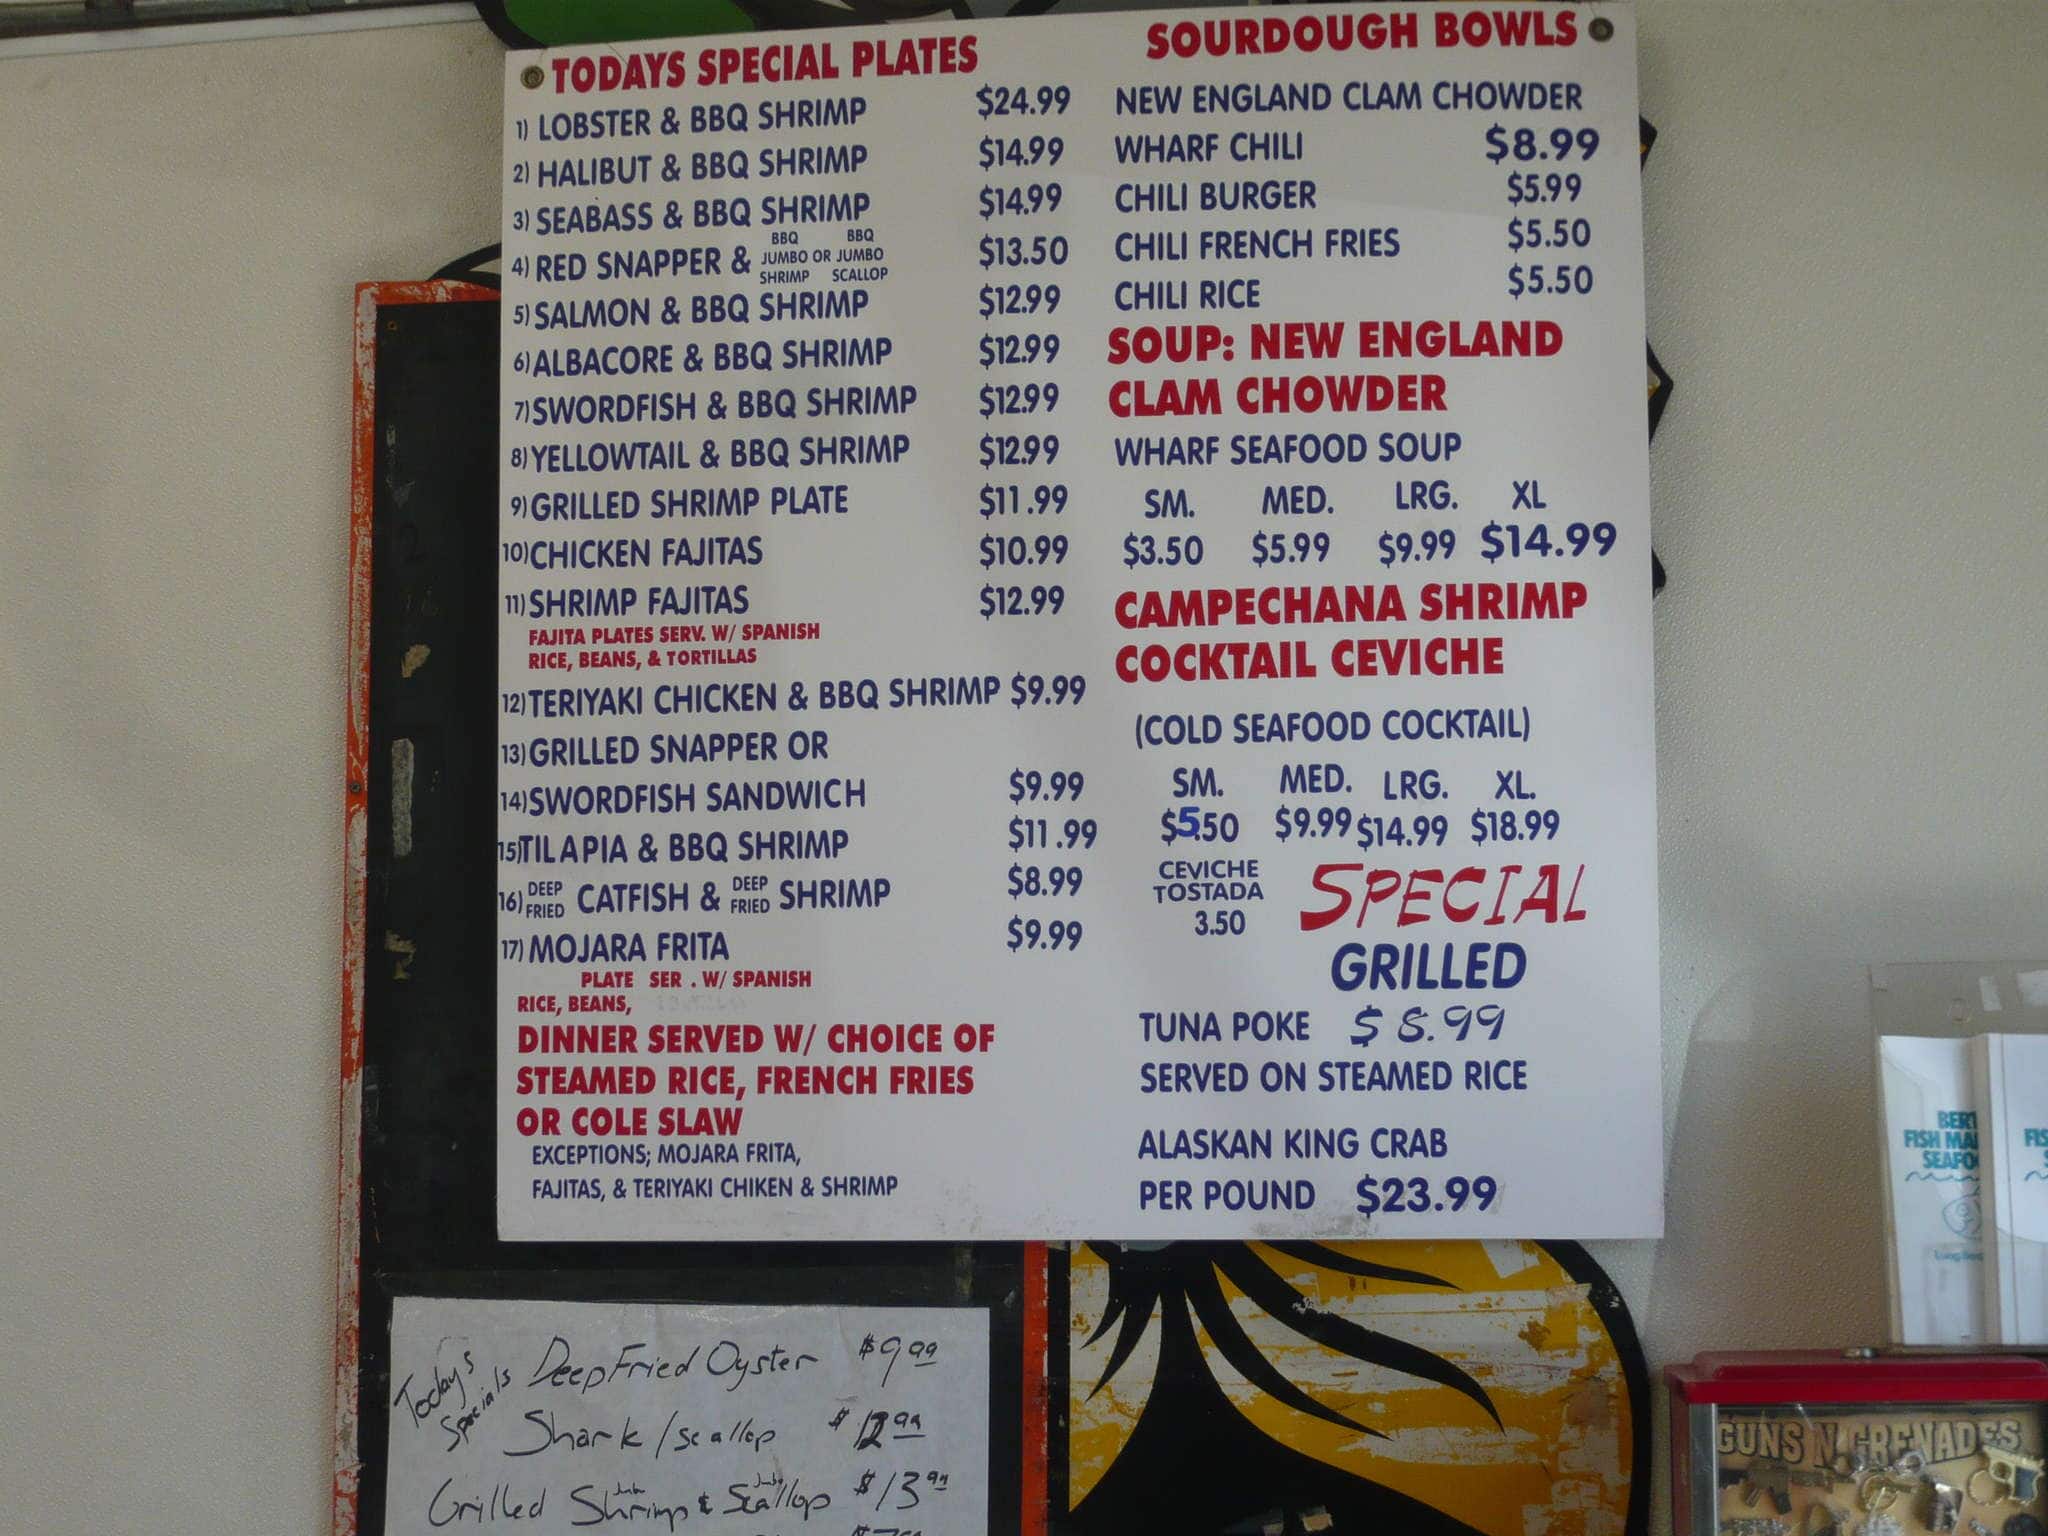 TODAYS SPECIAL PLATES
1) LOBSTER & BBQ SHRIMP $24.99
2) HALIBUT & BBQ SHRIMP $14.99
3) SEABASS & BBQ SHRIMP $14.99
4) RED SNAPPER & BBQ JUMBO SHRIMP OR BBQ JUMBO SCALLOP $13.50
5) SALMON & BBQ SHRIMP $12.99
6) ALBACORE & BBQ SHRIMP $12.99
7) SWORDFISH & BBQ SHRIMP $12.99
8) YELLOWTAIL & BBQ SHRIMP $12.99
9) GRILLED SHRIMP PLATE $11.99
10) CHICKEN FAJITAS $10.99
11) SHRIMP FAJITAS $12.99
FAJITA PLATES SERV. W/ SPANISH
RICE, BEANS, & TORTILLAS
12) TERIYAKI CHICKEN & BBQ SHRIMP $9.99
13) GRILLED SNAPPER OR
14) SWORDFISH SANDWICH $9.99
15) TILAPIA & BBQ SHRIMP $11.99
16) DEEP FRIED CATFISH & DEEP FRIED SHRIMP $8.99
17) MOJARA FRITA $9.99
PLATE SER . W/ SPANISH
RICE, BEANS,
DINNER SERVED W/ CHOICE OF
STEAMED RICE, FRENCH FRIES
OR COLE SLAW
EXCEPTIONS; MOJARA FRITA,
FAJITAS, & TERIYAKI CHIKEN & SHRIMP
SOURDOUGH BOWLS
NEW ENGLAND CLAM CHOWDER
WHARF CHILI $8.99
CHILI BURGER $5.99
CHILI FRENCH FRIES $5.50
CHILI RICE $5.50
SOUP: NEW ENGLAND
CLAM CHOWDER
WHARF SEAFOOD SOUP
SM. MED. LRG. XL
$3.50 $5.99 $9.99 $14.99
CAMPECHANA SHRIMP
COCKTAIL CEVICHE
(COLD SEAFOOD COCKTAIL)
SM. MED. LRG. XL.
$5.50 $9.99 $14.99 $18.99
CEVICHE
TOSTADA
3.50
SPECIAL
GRILLED
TUNA POKE $8.99
SERVED ON STEAMED RICE
ALASKAN KING CRAB
PER POUND $23.99
Todays Specials
Deep Fried Oyster $9.99
Shark / scallop $12.99
Grilled Jumbo Shrimp & Jumbo Scallop $13.99
FISH
SEAFO
GUNS N' GRENADES